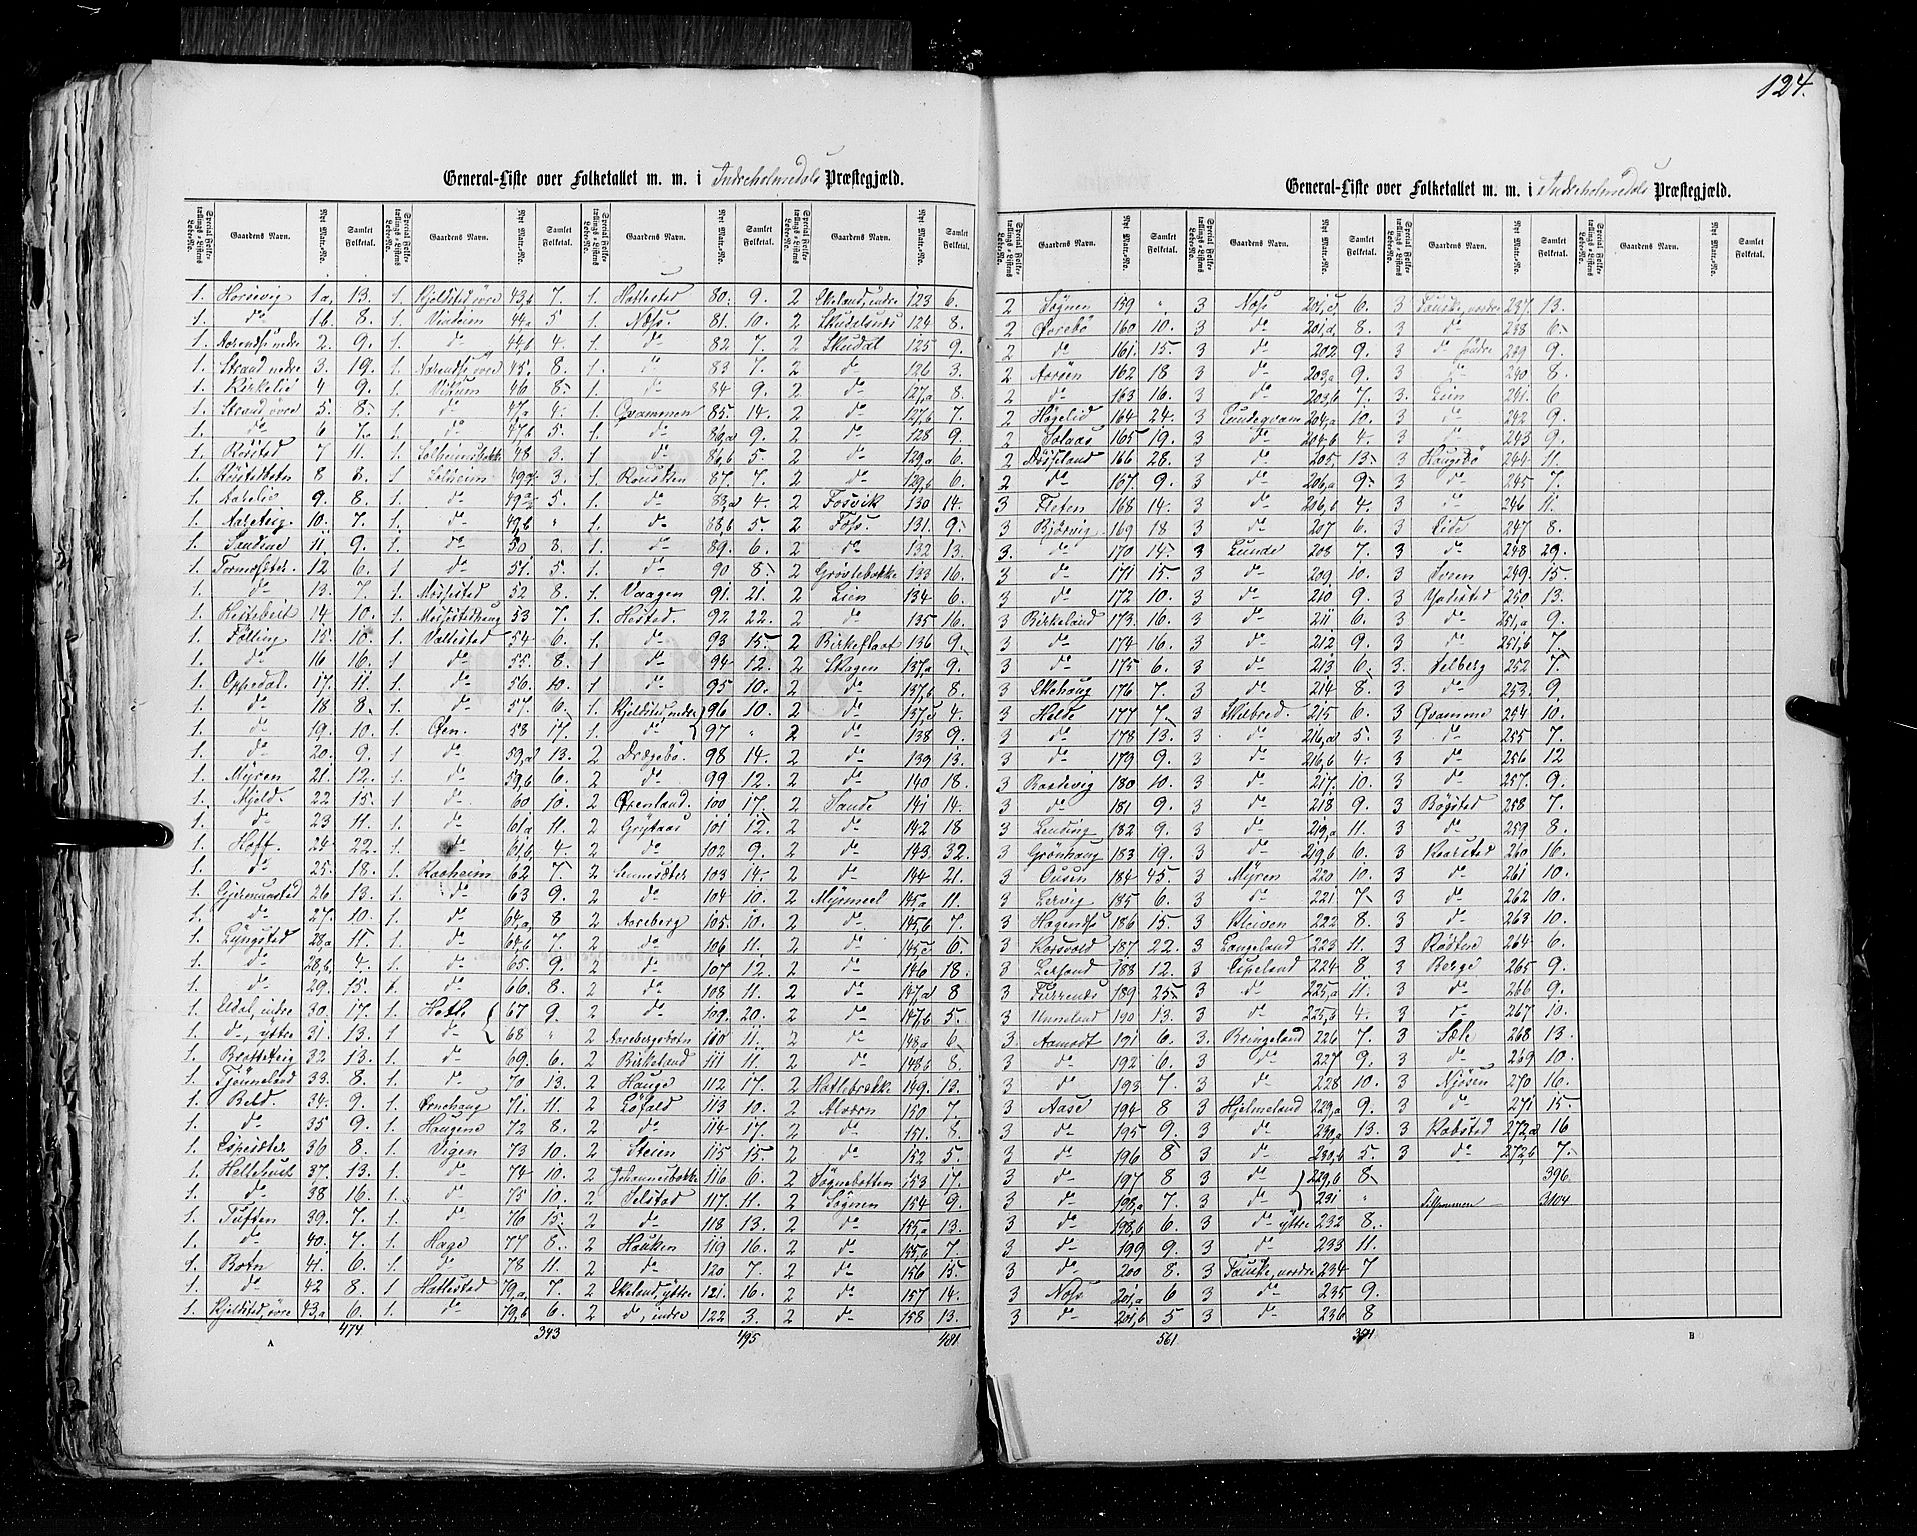 124.
General-Liste over Folketallet m. m. i Indreholmedals Præstegjæld.
Special Folketællings-Listens Løbe-No. Gaardens Navn. Nyt Matr.-No. Samlet Folketal.
1. Horsevig 1a, 13. 1. Kjeldstad øvre 43,b 7. 1. Hattestad 80. 9. 2 Ekeland, indre 123 6.
1. do 1b. 8. 1. Vinheim 44,a 5 1. Næss. 81. 10. 2 Skudalsnes 124 8.
1. 2. 9. 1. do 44,b 4. 1. do 82. 7. 2 Skudal 125 9.
1. Strand nedre 3. 19. 1. 45. 8. 1. do 83 7. 2 do 126 3.
1. Birkelid 4 9. 1. Vikum 46 8. 1. do 84 9. 2 do 127,a 8.
1. Strand, øvre 5. 8. 1. do 47,a 4. 1. Qvammen 85. 14. 2 do 127,b 7.
1. do 6 7. 1. do 47,b 5. 1. do 86,a 9. 2 do 128 9.
1. 7 11. 1. 48 3. 1. do 86,b 5. 2 do 129,a 6.
1. 8 8. 1 Solheim 49,a 3. 1. 87. 7. 2 do 129,b 6.
1. 9. 8. 1. do 5. 1. do 88,a 4. 2 Fosvik 130 14.
1. 10. 7. 1. do 49,b " 1. do 88,b 5. 2 Foss. 131. 9.
1. Sandene 11. 9. 1. do 50. 8. 1. do 89. 6. 2 do 132 13.
1. 12 6. 1. do 51. 5. 1. do 90 8. 2 133 16.
1. do 13. 7. 1. 52 8. 1. Vaagen 91. 21. 2 Lien 134 6.
1. 14 10. 1. 53 7. 1. Hestad. 92 22. 2 do 135 16.
1. Fölling 15. 10. 1. Vallestad 54. 6. 1. do 93 15. 2 Birkeflaat 136 9.
1. do 16 16. 1 do 55. 8. 1 do 94 12. 2 Skagen 137,a 9.
1. Oppedal. 17. 11. 1. do 56. 10. 1 do 95 10. 2 do 137,b 8.
1. do 18 8. 1. do 57. 6. 1. Kjeldstad, indre 96 10. 2 do 137,c 4.
1. do 19. 10. 1. Øen. 58 17. 1. do 97 " 2 do 138 9.
1. do 20. 9. 1. do 59,a 13. 2 Drægebø. 98 14. 2 do 139 13.
1. Myren 21. 12. 1. do 59,b 6. 2 do 99 12. 2 do 140 18.
1. Mjeld. 22 15. 1 do 60 10. 2 Øvenland. 100 17. 2 Sande 141 14.
1. do 23 11. 1. do 61,a 11. 2 Grytaas 101 12. 2 do 142 18
1. Hoff. 24. 22. 1. do 61,b 4. 2 do 102 9. 2 do 143. 32.
1. do 25. 18. 1. Raaheim 62 7. 2 103 14. 2 do 144 21.
1. Gjermunstad 26 13. 1. do 63 9. 2 do 104 10. 2 Myrmeel 145,a 11.
1. do 27. 10. 1. do 64,a, 8 2 Aareberg 105. 10. 2 do 145,b 7.
1. Lyngstad 28,a 11. 1. do 64,b 7. 2 do 106 11. 2 do 145,c 6.
1. do 28,b 4. 1. do 65. 9. 2 do 107 12. 2 do 146 18.
1. do 29. 15. 1. do 66. 8. 2 do 108 11. 2 do 147,a 8
1. Eldal, indre 30. 17. 1. Hetle 67 9. 2 do 109. 20. 2 do 147,b 5.
1. do, ytre 31. 13. 1. do 68 " 2 Aarebergsbotn 110 11. 2 do 148,a 6.
1. Bratteteig 32 13. 1. do 69. 6. 2 Birkeland 111 11. 2 do 148,b 8.
1. Tjönneland 33. 8. 1. do 70 13. 2 Hauge 112 17. 2 Hatlebrække 149. 13.
1. Beld. 34. 9. 1. Ørnehaug 71. 11. 2 Løfald 113 10. 2 Alværn 150 7.
1. do 35 9. 1. Haugene 72 8. 2 do 114 17. 2 do 151. 8.
1. Espesæter 36 8. 1. Vigen 73 10. 2 Steien 115 15. 2 do 152 5.
1. 37. 13. 1. do 74 10. 2 Johannesbakke 116 6. 2 Søgnebotten 153 17.
1. do 38 16. 1. do 75 10. 2 Selstad 117. 11. 2 Søgnen 154 9.
1. Tuften 39. 7. 1. do 76 15. 2 do 118 13. 2 do 155,a 13.
1. do 40. 7. 1. Hage 77 8. 2 Hauken 119 16. 2 do 155,b 7.
1. Botn 41. 6. 1. do 78 11. 2 do 120 7. 2 do 156 15.
1. do 42 8. 1 Hattestad 79,a, 7. 2 Ekeland, ytre 121. 16. 2 do 157 14.
1. Kjeldstad, øvre 43,a 6. 1. do 79,b 6. 2 do, indre 122 3. 2 do 158 13.
474. 343 495 481
A
General-Liste over Folketallet m. m. i Indreholmedals Præstegjæld.
Special Folketællings-Listens Løbe-No. Gaardens Navn. Nyt Matr.-No. Samlet Folketal.
2 Søgnen 159 " 3 Næss 201,c 6. 3 Sunde, nordre 237. 13.
2 Øvrebø 160 10. 3 do 201,d 8. 3 do 238 6.
2 do 161. 15. 3 do 202 9. 3 do søndre 239 9.
2 162 18 3 do 203,a 9. 3 do 240 8.
2 do 163 16. 3 do 203,b 7. 3. Lien 241. 6
2 Høgelid 164 24. 3 Sundeqvam 204,a 10. 3 do 242 9.
2 165 19. 3 do 204,b 4. 3 do 243 9.
2 166 28. 3 do 205, 13. 3 Haugebø 244 11.
2 do 167. 9. 3 do 206,a 9. 3 do 245 7.
3 Fleten 168 14. 3 do 206,b 4. 3 do 246 11.
3 Bjørvig 169 18 3 do 207 6. 3 Eide 247 8.
3. do 170 14. 3 Lunde 208 7. 3 do 248 29.
3 do 171 15. 3 do 209 10. 3 249. 15.
3 do 172 10. 3 do 210 9. 3 250 13.
3 Birkeland 173. 16. 3 do 211 6. 3 do 251,a 9.
3 do 174 16. 3 do 212 9. 3 do 251,b 7.
3 do 175 6. 3 do 213 6. 3. Selberg 252 7.
3 Ekehaug 176 7. 3 do 214 8. 3 do 253. 9.
3 Helde 177 7. 3 Skilbred. 215 6. 3 Qvamme 254 10.
3 do 178 13. 3 do 216,a 5. 3 do 255 7.
3 do 179 9. 3 do 216,b 4. 3 do 256 12
3 180 10. 3 do 217. 10. 3 do 257. 9.
3 do 181 9. 3 do 218 9. 3 Bøgstad 258 7.
3 Lending 182 9. 3 do 219,a 11. 3 do 259 8.
3 Grønhaug 183 19. 3 do 219,b 6. 3 Kaarstad 260 16.
3 Ousen 184 45. 3 Myren 220 10. 3 do 261 10.
3 Lervig 185 6. 3 do 221 7. 3 do 262 10.
3 186 15. 3 Kleiven 222 8. 3 do 263 10.
3 Korsvold 187 22. 3 Langeland 223 11. 3 264 6.
3 188 12. 3 Espeland 224 8. 3 Berge 265 9.
3 189. 25. 3 do 225,a 11. 3 do 266 9.
3 Unneland 190 13. 3 do 225,b 4. 3 do 267 10.
3 Aamodt 191 6. 3. Bringeland 226 7. 3 Sæle 268 13.
3 do 192 6. 3 do 227 9. 3 do 269 10.
3 do 193 7. 3 do 228 10. 3 Njøsen 270 16.
3 Aase 194 8 3 Hjelmeland 229,a 9. 3 do 271 15.
3 do 195 9. 3 do 230,a 13. 3 Kobstad 272,a 16
3 do 196 8 3 do 230,b 5. 3 do 272,b 7.
3 do 197 8 3 do 229,b 8. 396.
3 do 198,a 7. 3 do 231 " Tilsammen 3104
3 do 198,b 6. 3 do ytre 232 8.
3 do 199 9. 3 do 233 11.
3 do 200 8. 3 Sunde, nordre 234 7
3 Næss 201,a 6 3 do 235 9.
3 do 201,b 5 3 do 236 8
561.
B